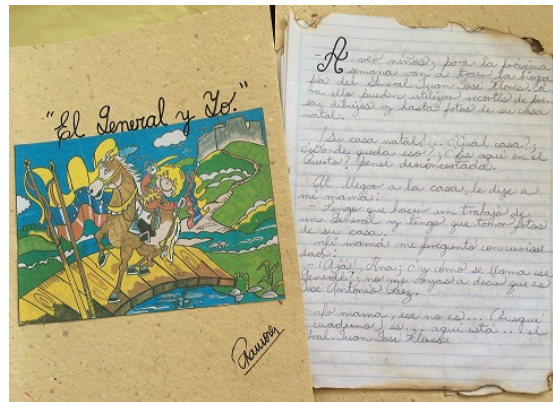 "El General y Yo."
- A ver niños; para la próxima
semana van a traer la biogra
fía del General Juan José Flores. Pa
ra ello pueden utilizar recortes de pren
sa, dibujos y hasta fotos de su casa
natal.
¡Su casa natal!... ¿Cuál casa?;
¿dónde queda eso?; ¿Es aquí en el
Puerto? pensé desconcertada.
Al llegar a la casa, le dije a
mi mamá:
- Tengo que hacer un trabajo de
un General y tengo que tomar fotos
de su casa.
mi mamá me preguntó con curiosi
dad:
- ¡Ajá! Ana; ¿y cómo se llama ese
General?; no me vayas a decir que es
José Antonio Páez.
- No mamá, ese no es... (busqué
cuaderno) es... aquí está... el
ral. Juan José Flores.